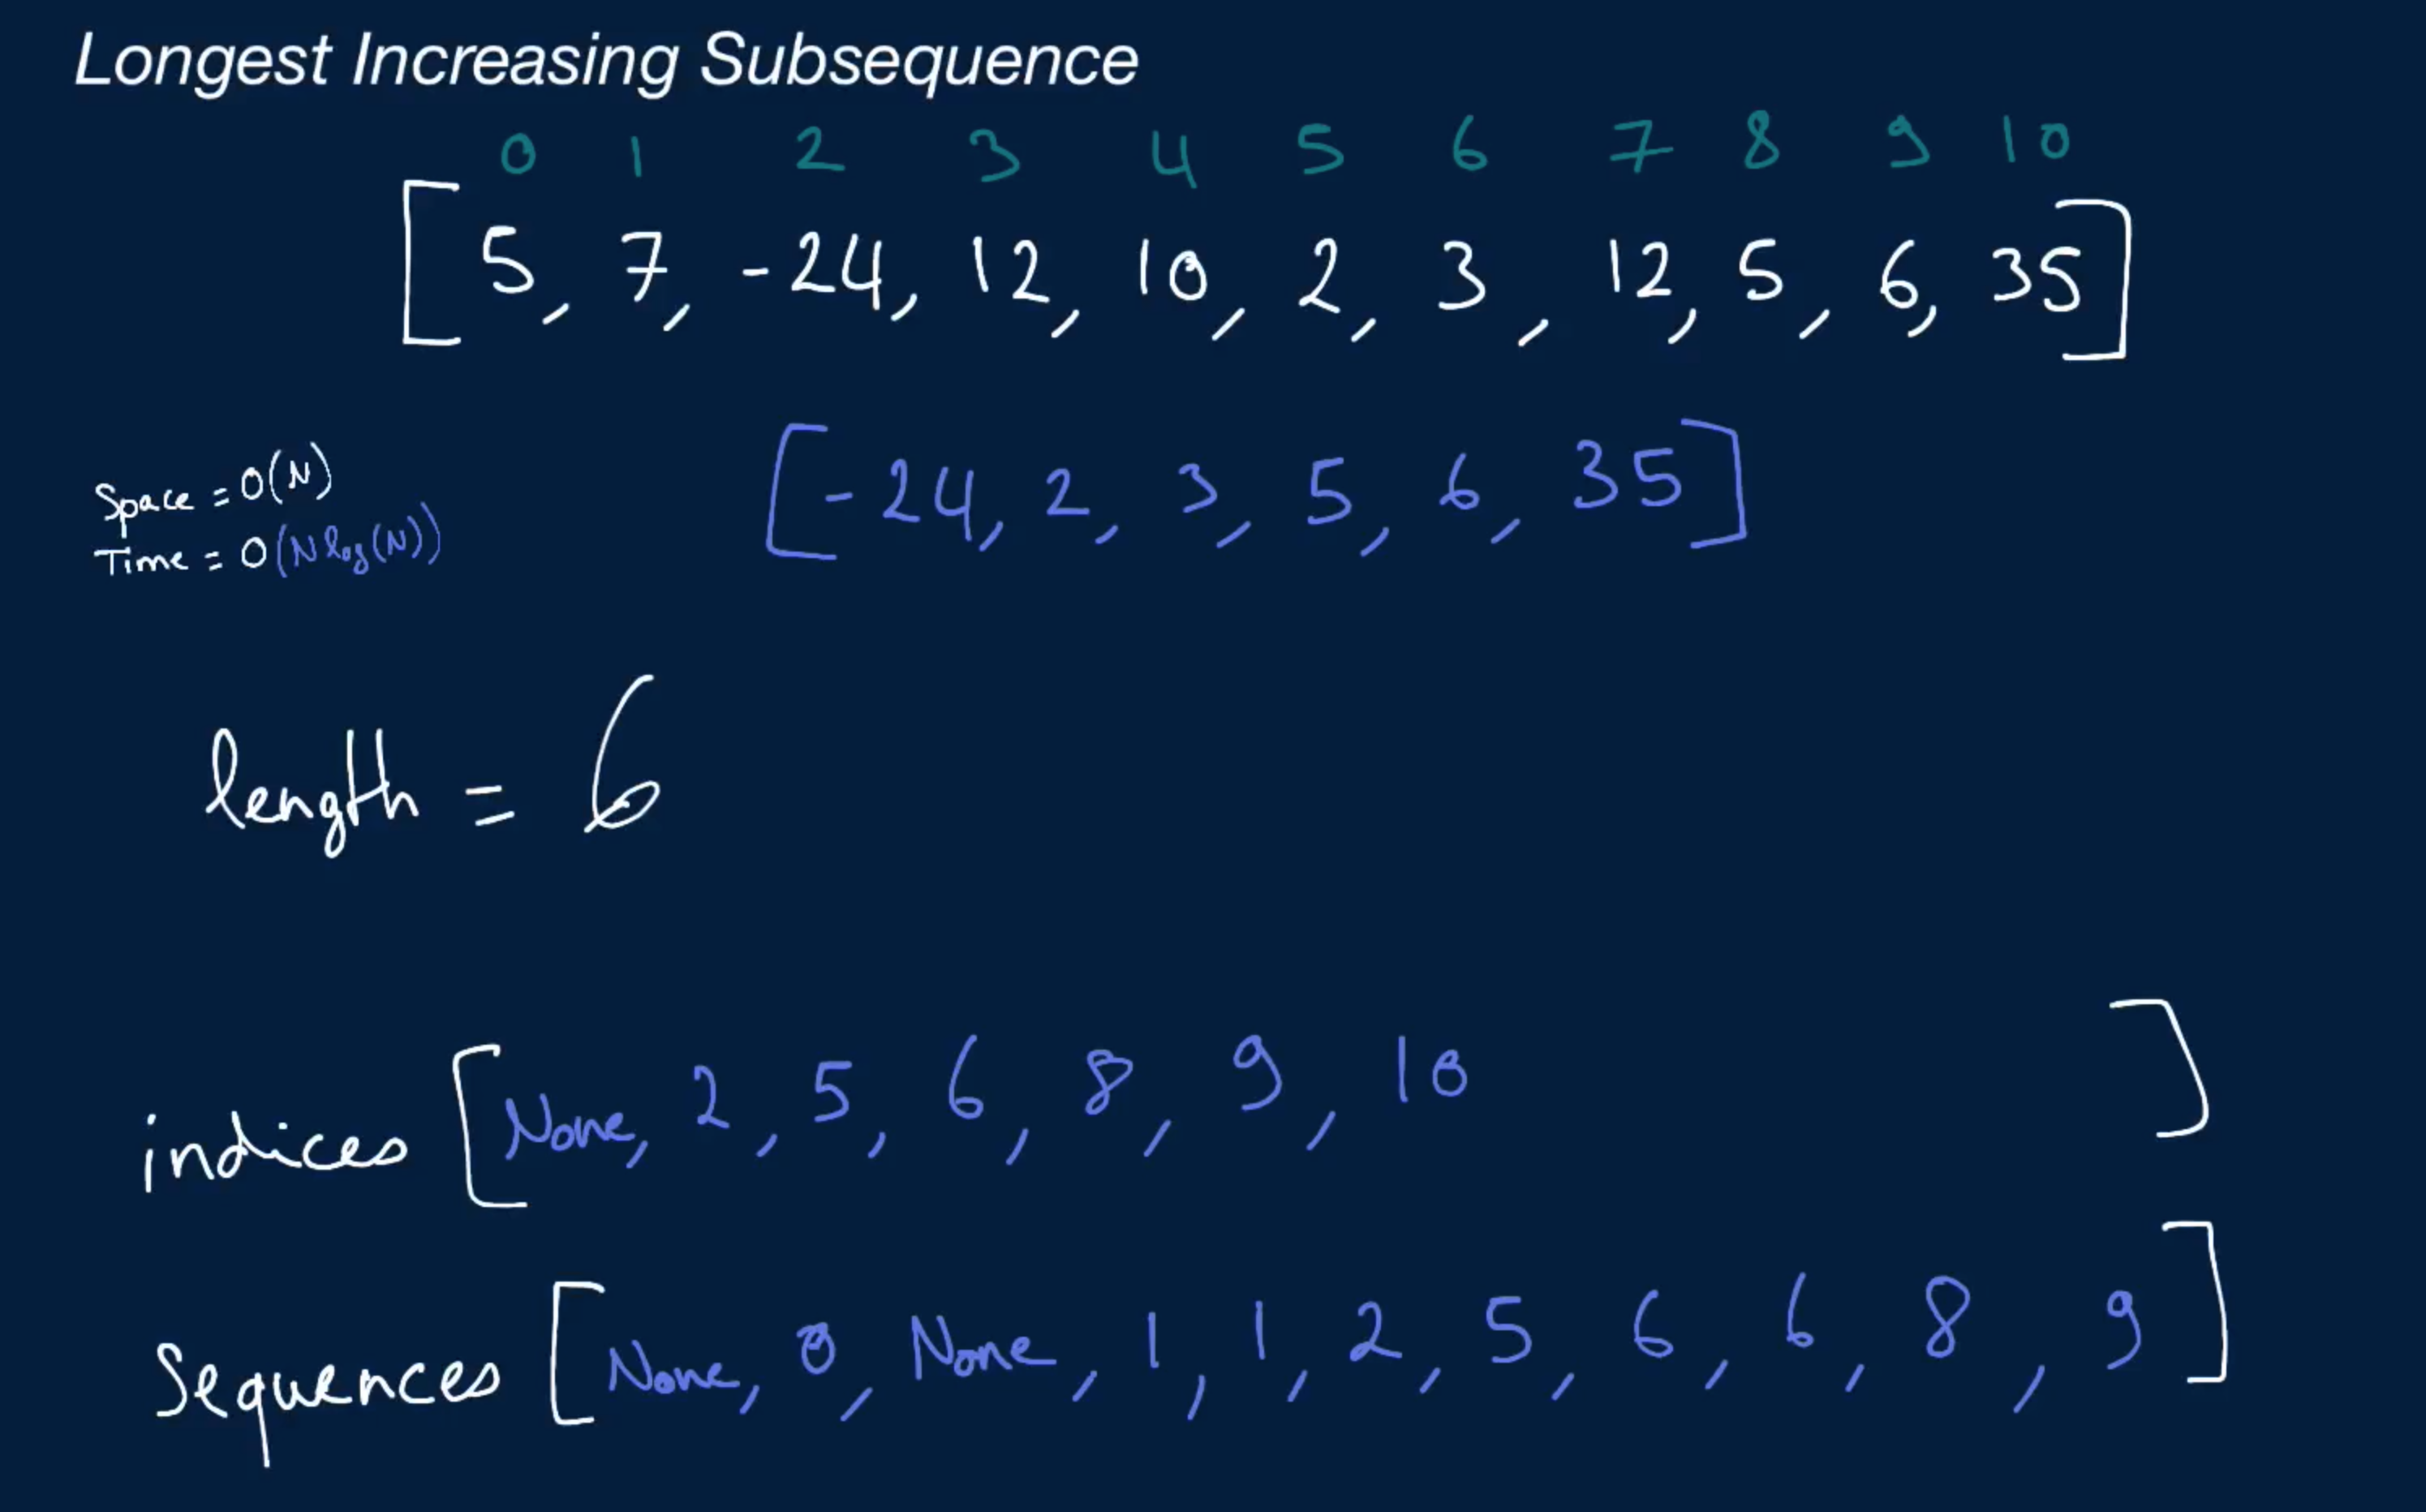 Longest Increasing Subsequence
0 1 2 3 4 5 6 7 8 9 10
[5, 7, -24, 12, 10, 2, 3, 12, 5, 6, 35]
[-24, 2, 3, 5, 6, 35]
Space = O(N)
Time = O(N log(N))
length = 6
indices [None, 2, 5, 6, 8, 9, 10 ]
Sequences [None, 0, None, 1, 1, 2, 5, 6, 6, 8, 9]